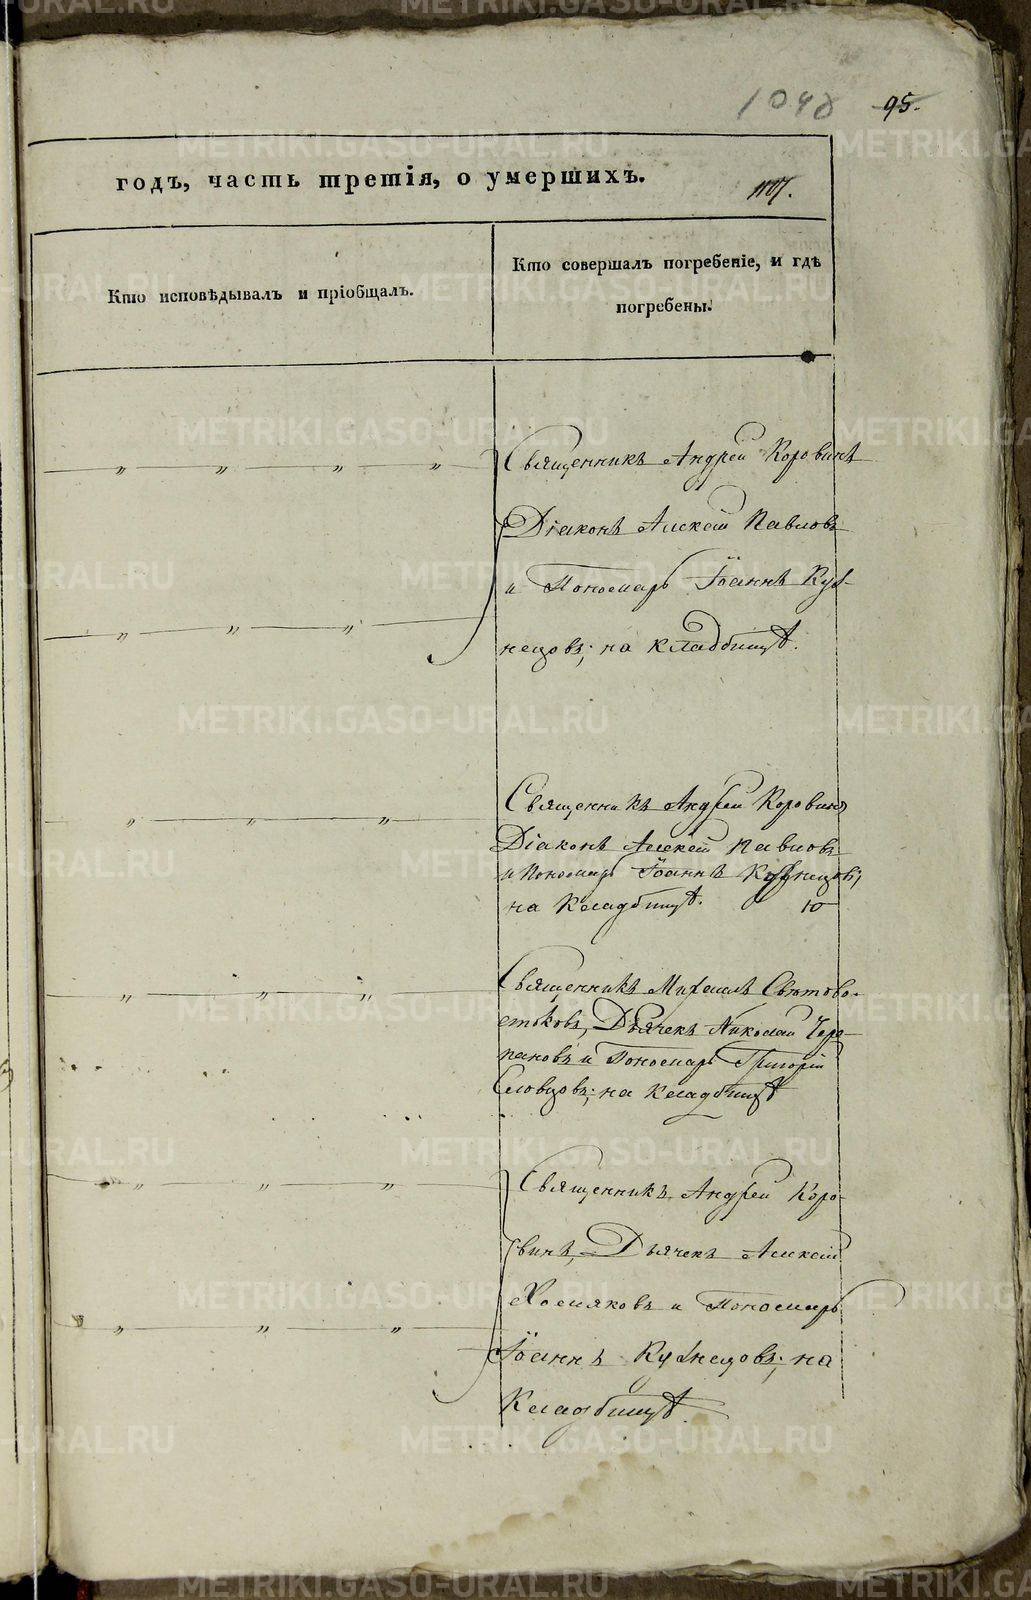 1048 95.
годъ, часть третія, о умершихъ. 1107.
Кто исповѣдывалъ и пріобщалъ.
Кто совершалъ погребеніе, и гдѣ
погребены.
Священникъ Андрей Коровинъ
Діаконъ Алексѣй Павловъ
и Пономарь Іоаннъ Куз-
нецовъ; на кладбищѣ.
Священникъ Андрей Коровинъ
Діаконъ Алексѣй Павловъ
и Пономарь Іоаннъ Кузнецовъ;
на Кладбищѣ. 10
Священникъ Михаилъ Свѣтово-
стоковъ, Дьячекъ Николай Чере-
пановъ и Пономарь Григорій
Словцовъ; на Кладбищѣ
Священникъ Андрей Коро-
винъ, Дьячекъ Алексѣй
Хомяковъ и Пономарь
Іоаннъ Кузнецовъ; на
Кладбищѣ.
METRIKI.GASO-URAL.RU